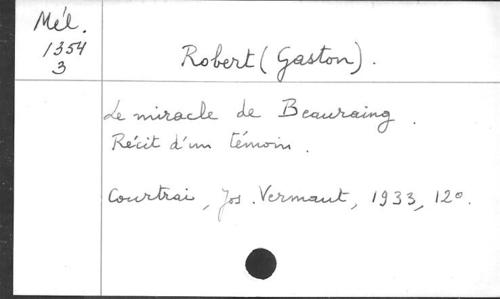 Mél.
1354
3
Robert (Gaston).
Le miracle de Beauraing.
Récit d'un témoin.
Courtrai, Jos. Vermaut, 1933, 12°.